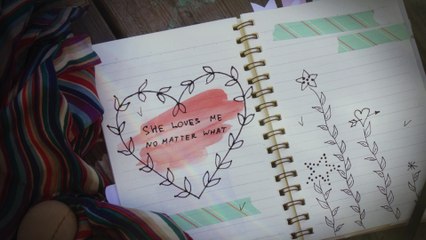 SHE LOVES ME
NO MATTER WHAT